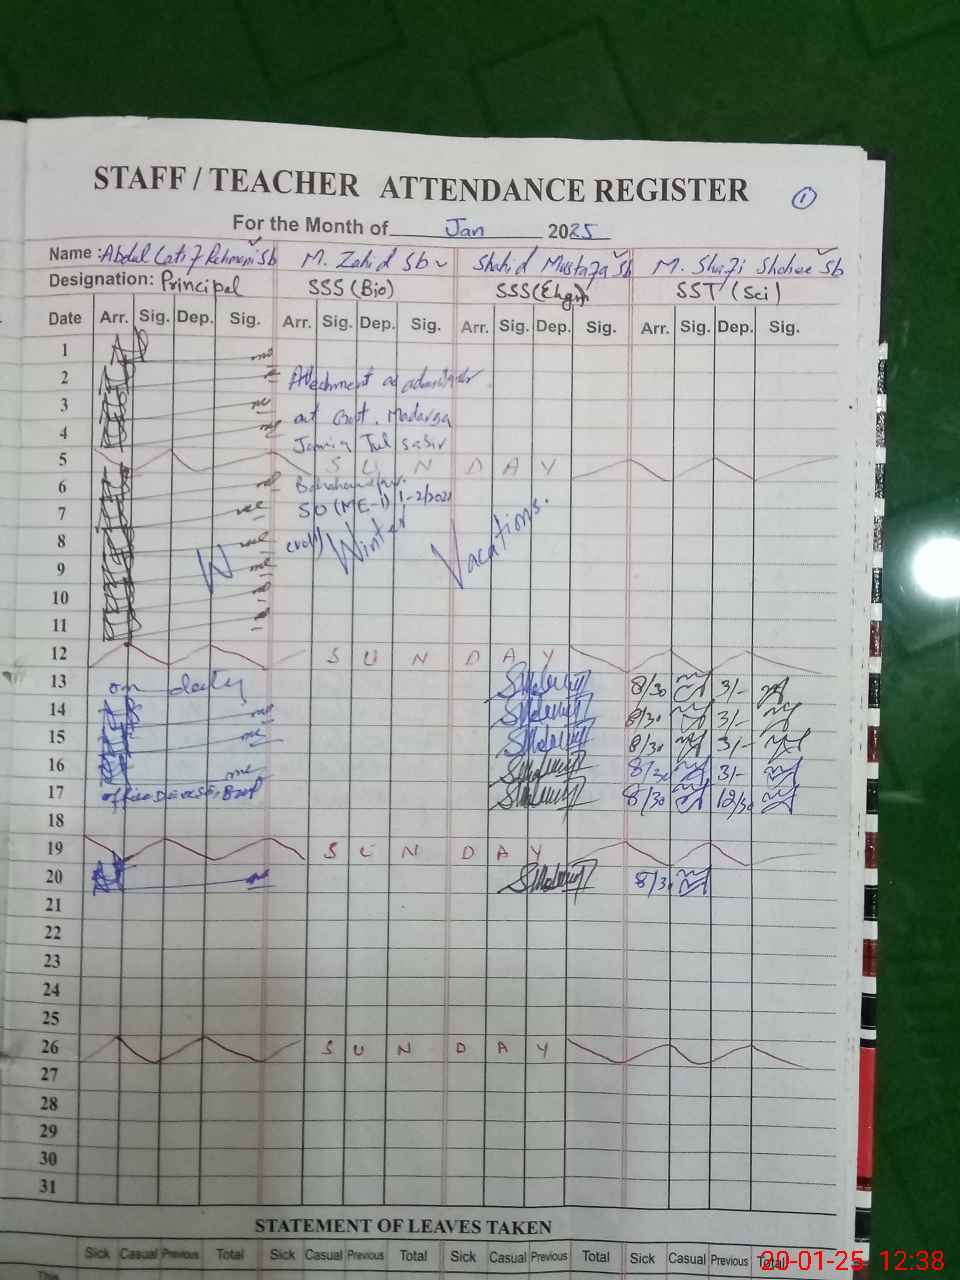 STAFF / TEACHER ATTENDANCE REGISTER
1
For the Month of Jan 2025
Name : Abdul Latif Rehmani Sb M. Zahid Sb Shahid Mustafa Sb M. Shafi Shohee Sb
Designation: Principal SSS (Bio) SSS (Eng) SST (Sci)
Date Arr. Sig. Dep. Sig. Arr. Sig. Dep. Sig. Arr. Sig. Dep. Sig. Arr. Sig. Dep. Sig.
1
2 Attachment as
3 Govt. Madarsa
4 Jamia Tul
5 SUNDAY
6
7 SO (ME-I) 1-2/202
8 Winter Vacations.
9
10
11
12 SUNDAY
13 on duty 8/30 3/-
14 8/30 3/-
15 8/30 3/-
16 8/30 3/-
17 office 8/30 12/30
18
19 SUNDAY
20 8/30
21
22
23
24
25
26 SUNDAY
27
28
29
30
31
STATEMENT OF LEAVES TAKEN
Sick Casual Previous Total Sick Casual Previous Total Sick Casual Previous Total Sick Casual Previous Total
This
20-01-25 12:38